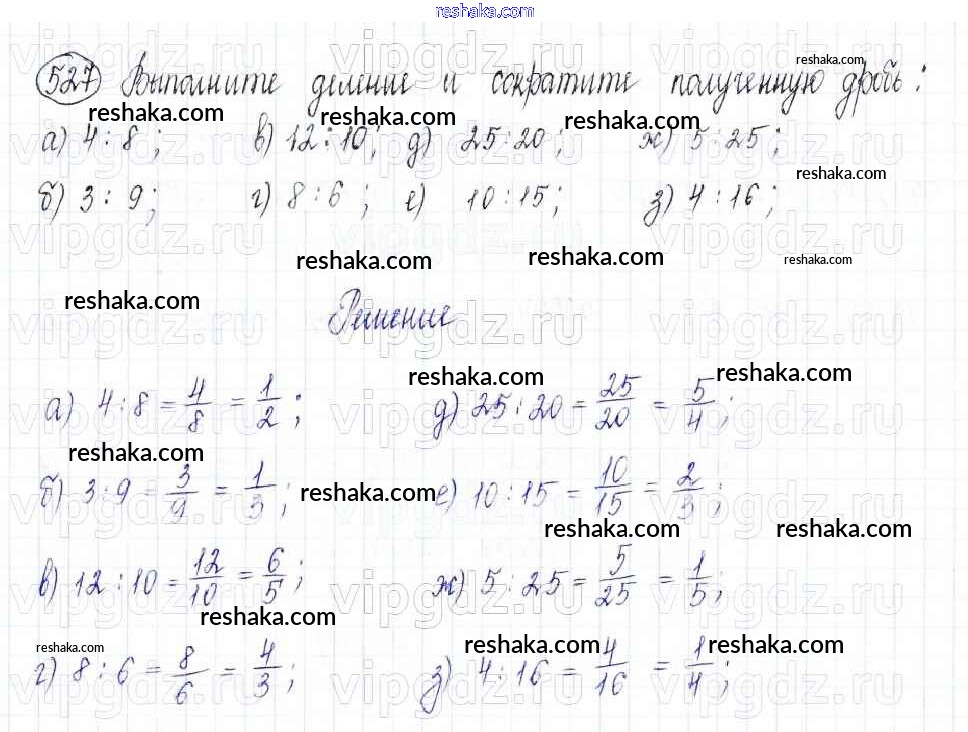 reshaka.com
527 Выполните деление и сократите полученную дробь:
а) 4:8; в) 12:10; д) 25:20; ж) 5:25;
б) 3:9; г) 8:6; е) 10:15; з) 4:16;
Решение
а) 4:8 = 4/8 = 1/2; д) 25:20 = 25/20 = 5/4;
б) 3:9 = 3/9 = 1/3; е) 10:15 = 10/15 = 2/3;
в) 12:10 = 12/10 = 6/5; ж) 5:25 = 5/25 = 1/5;
г) 8:6 = 8/6 = 4/3; з) 4:16 = 4/16 = 1/4;